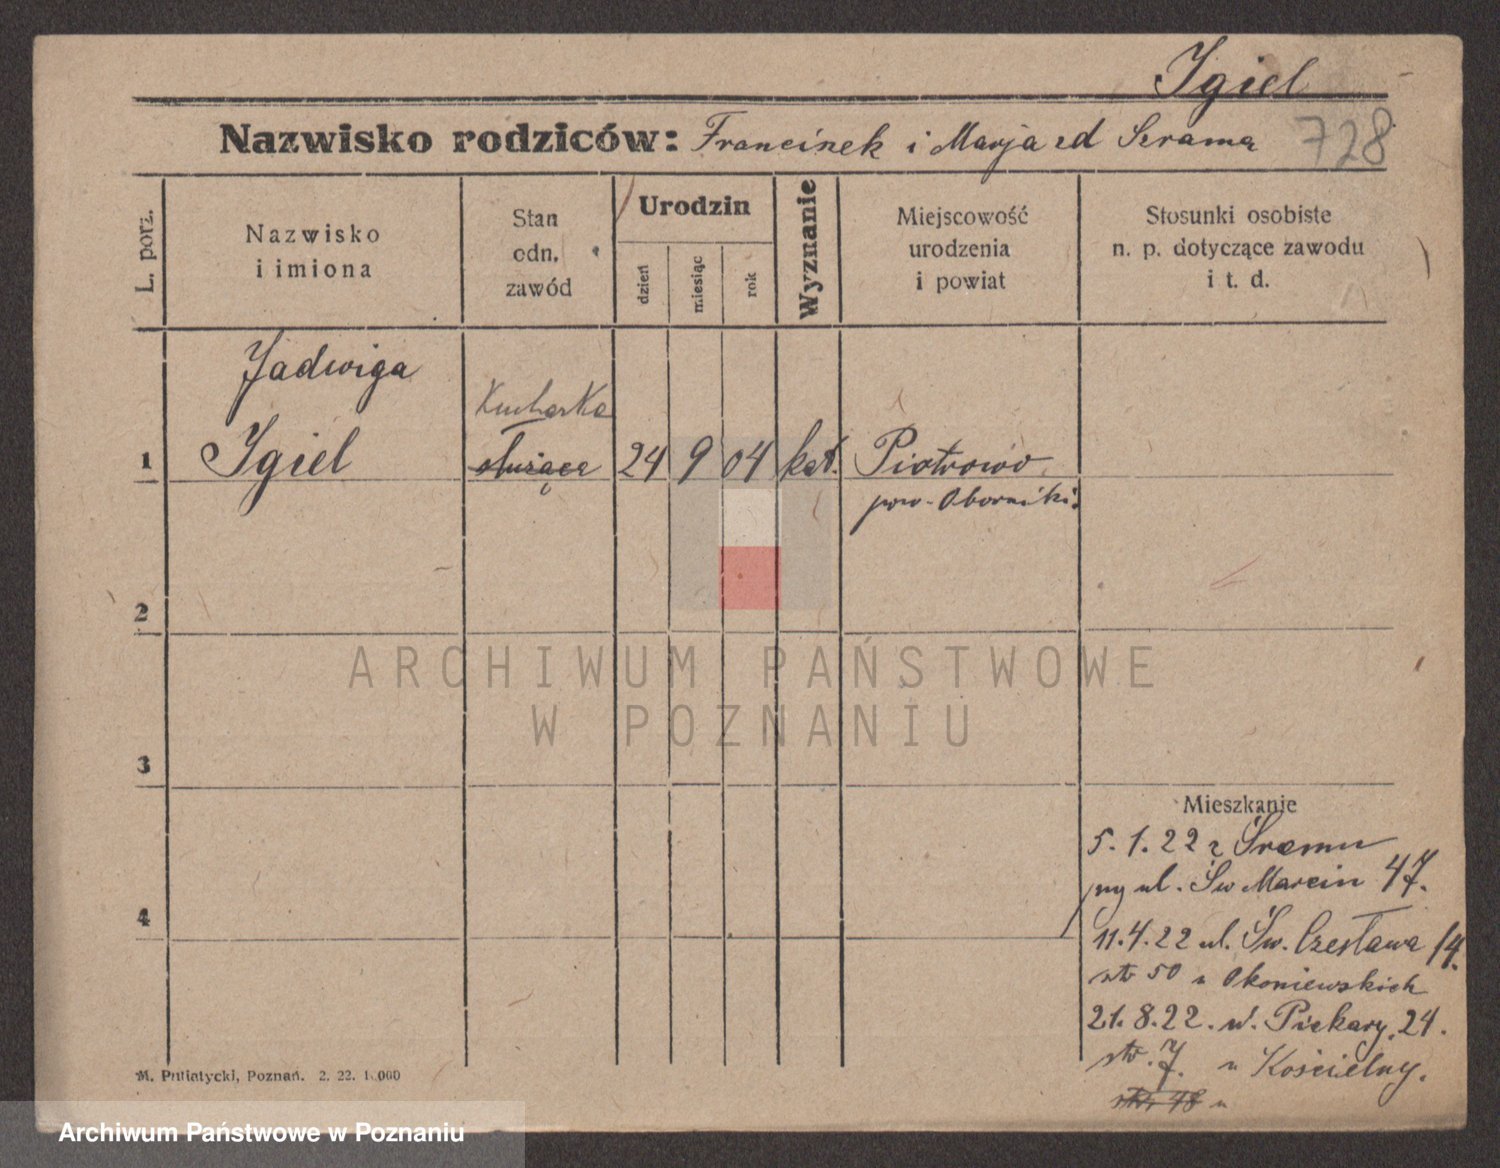 Igiel
Nazwisko rodziców: Francinek i Marja zd Szrama 728
L. porz.
Nazwisko
i imiona
Stan
odn.
zawód
Urodzin
dzień
miesiąc
rok
Wyznanie
Miejscowość
urodzenia
i powiat
Stosunki osobiste
n. p. dotyczące zawodu
i t. d.
Jadwiga
Kucharka
1 Igiel służąca 24 9 04 kat. Piotrowo
pow. Oborniki
2
ARCHIWUM PAŃSTWOWE
W POZNANIU
3
Mieszkanie
5. 1. 22 z Śremu
ul. Św Marcin 47.
4
11. 4. 22 ul. Św. Czesława 14.
str 50 u Okoniewskich
21. 8. 22. ul. Piekary 24.
str. 7. u Kościelny.
str. 48 u
M. Putiatycki, Poznań. 2. 22. 1.000
Archiwum Państwowe w Poznaniu